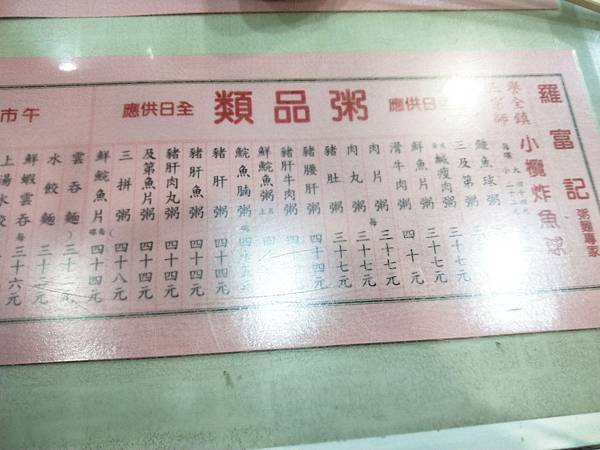 羅富記
粥麵專家
小欖炸魚球
譽全鎮
粥品類
全日供應
鯪魚球粥
三及第粥 三十七元
鹹瘦肉粥 三十七元
鮮魚片粥 四十元
滑牛肉粥 三十七元
肉片粥 三十七元
肉丸粥 三十七元
豬肚粥 三十七元
豬腰粥 四十四元
豬肝牛肉粥
豬肝肉粥
鮮鯇魚粥
鯇魚腩粥
豬肝粥 四十元
豬肝魚粥 四十四元
豬肝肉丸粥 四十四元
及第魚片粥 四十四元
三拼粥 四十八元
鮮鯇魚片 四十四元
午市
雲吞麵
水餃麵
鮮蝦雲吞 三十六元
上湯水餃